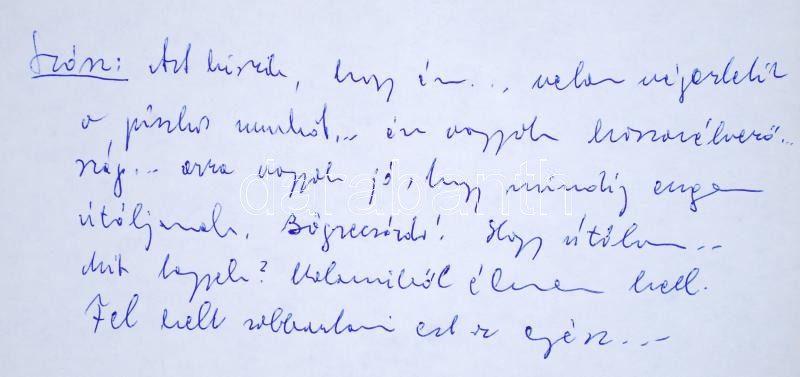 Szász: Azt hiszik, hogy én... velem végeztetik
a piszkos munkát... én vagyok
... arra vagyok jó, hogy mindig engem
útáljanak. Bögrecsárda! Hogy útálom...
Mit tegyek? Valamiből élnem kell.
Fel kell robbantani ezt az egész...
darabanth